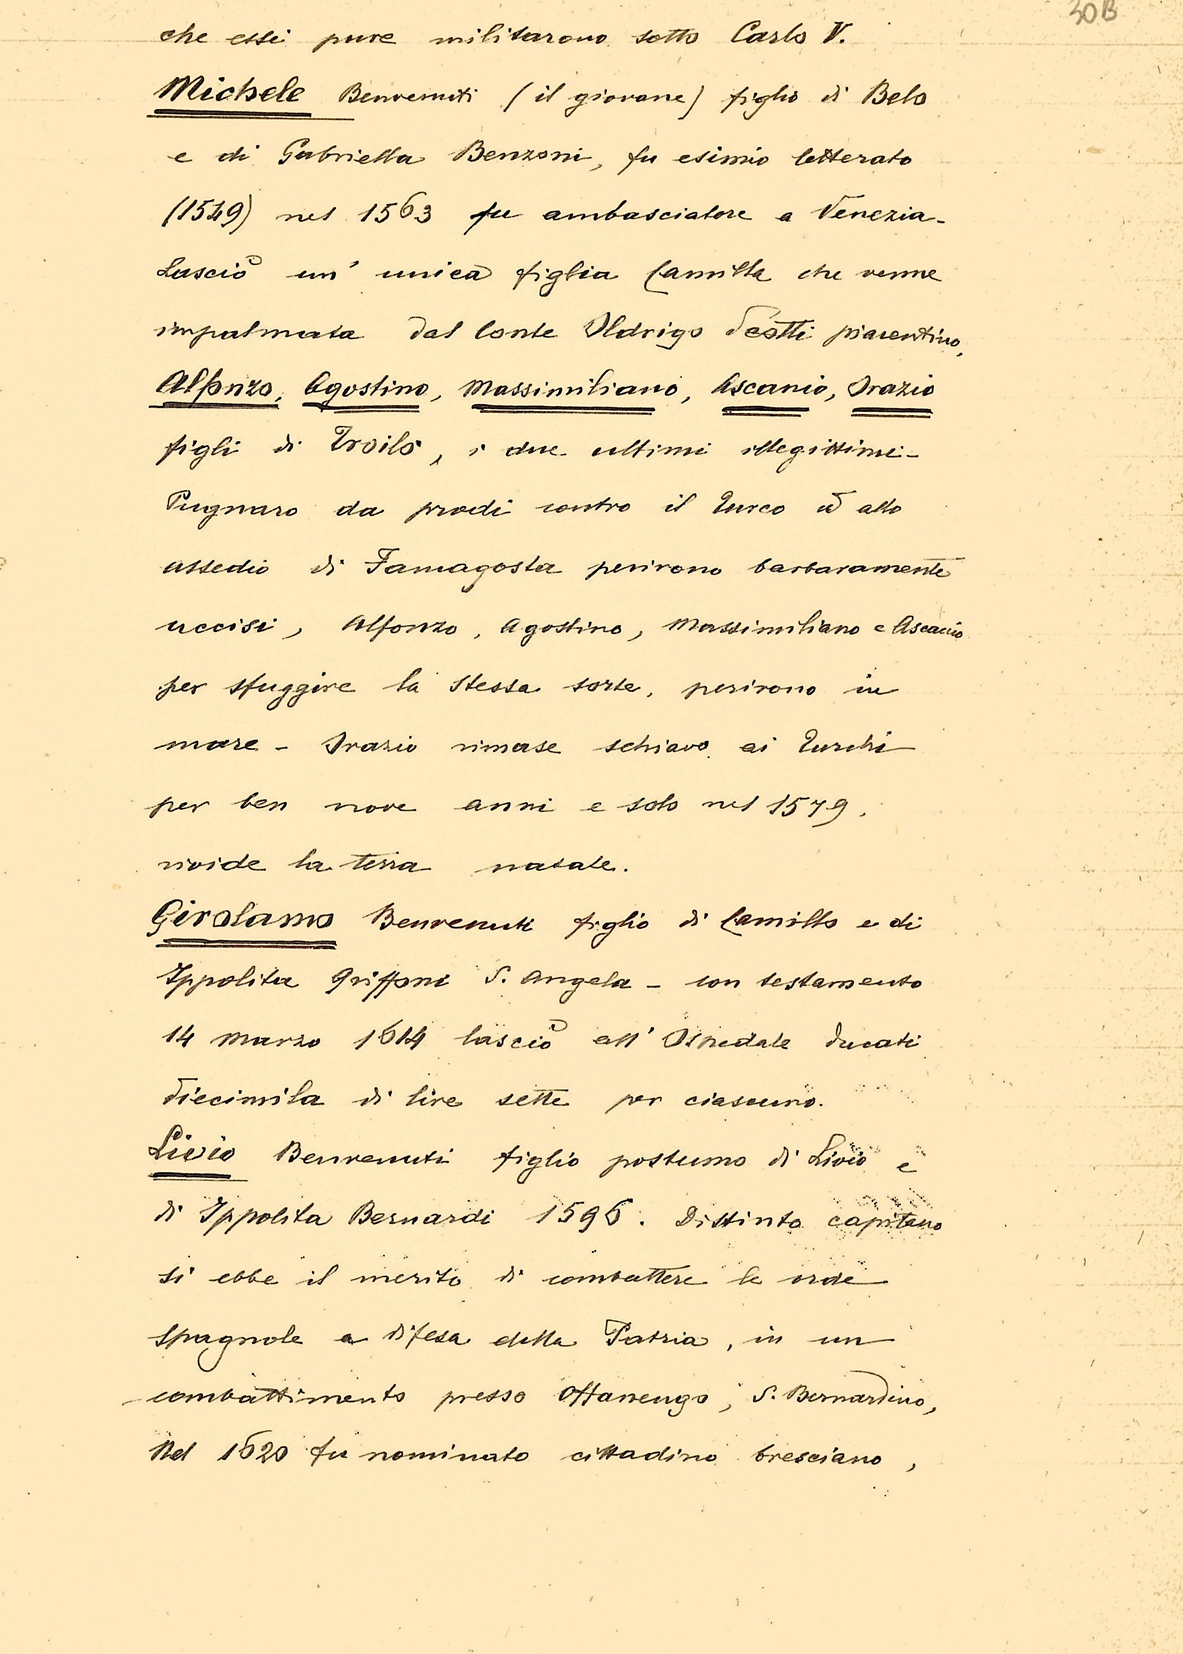 30B
che essi pure militarono sotto Carlo V.
Michele Benvenuti (il giovane) figlio di Belo
e di Gabriella Benzoni, fu esimio letterato
(1549) nel 1563 fu ambasciatore a Venezia-
Lasciò un' unica figlia Camilla che venne
impalmata dal Conte Oldrigo Scotti piacentino,
Alfonzo, Agostino, Massimiliano, Ascanio, Orazio
figli di Troilo, i due ultimi illegittimi-
Pugnaro da prodi contro il Turco ed allo
assedio di Famagosta perirono barbaramente
uccisi, Alfonzo, Agostino, Massimiliano e Ascanio
per sfuggire la stessa sorte, perirono in
mare - Orazio rimase schiavo ai Turchi
per ben nove anni e solo nel 1579.
rivide la terra natale.
Girolamo Benvenuti figlio di Camillo e di
Ippolita Griffoni S. Angela - con testamento
14 Marzo 1614 lasciò all' Ospedale ducati
diecimila di lire sette per ciascuno.
Livio Benvenuti figlio postumo di Livio e
di Ippolita Bernardi 1596. Distinto capitano
si ebbe il merito di combattere le orde
spagnole a difesa della Patria, in un
combattimento presso Offanengo, S. Bernardino,
Nel 1620 fu nominato cittadino bresciano,